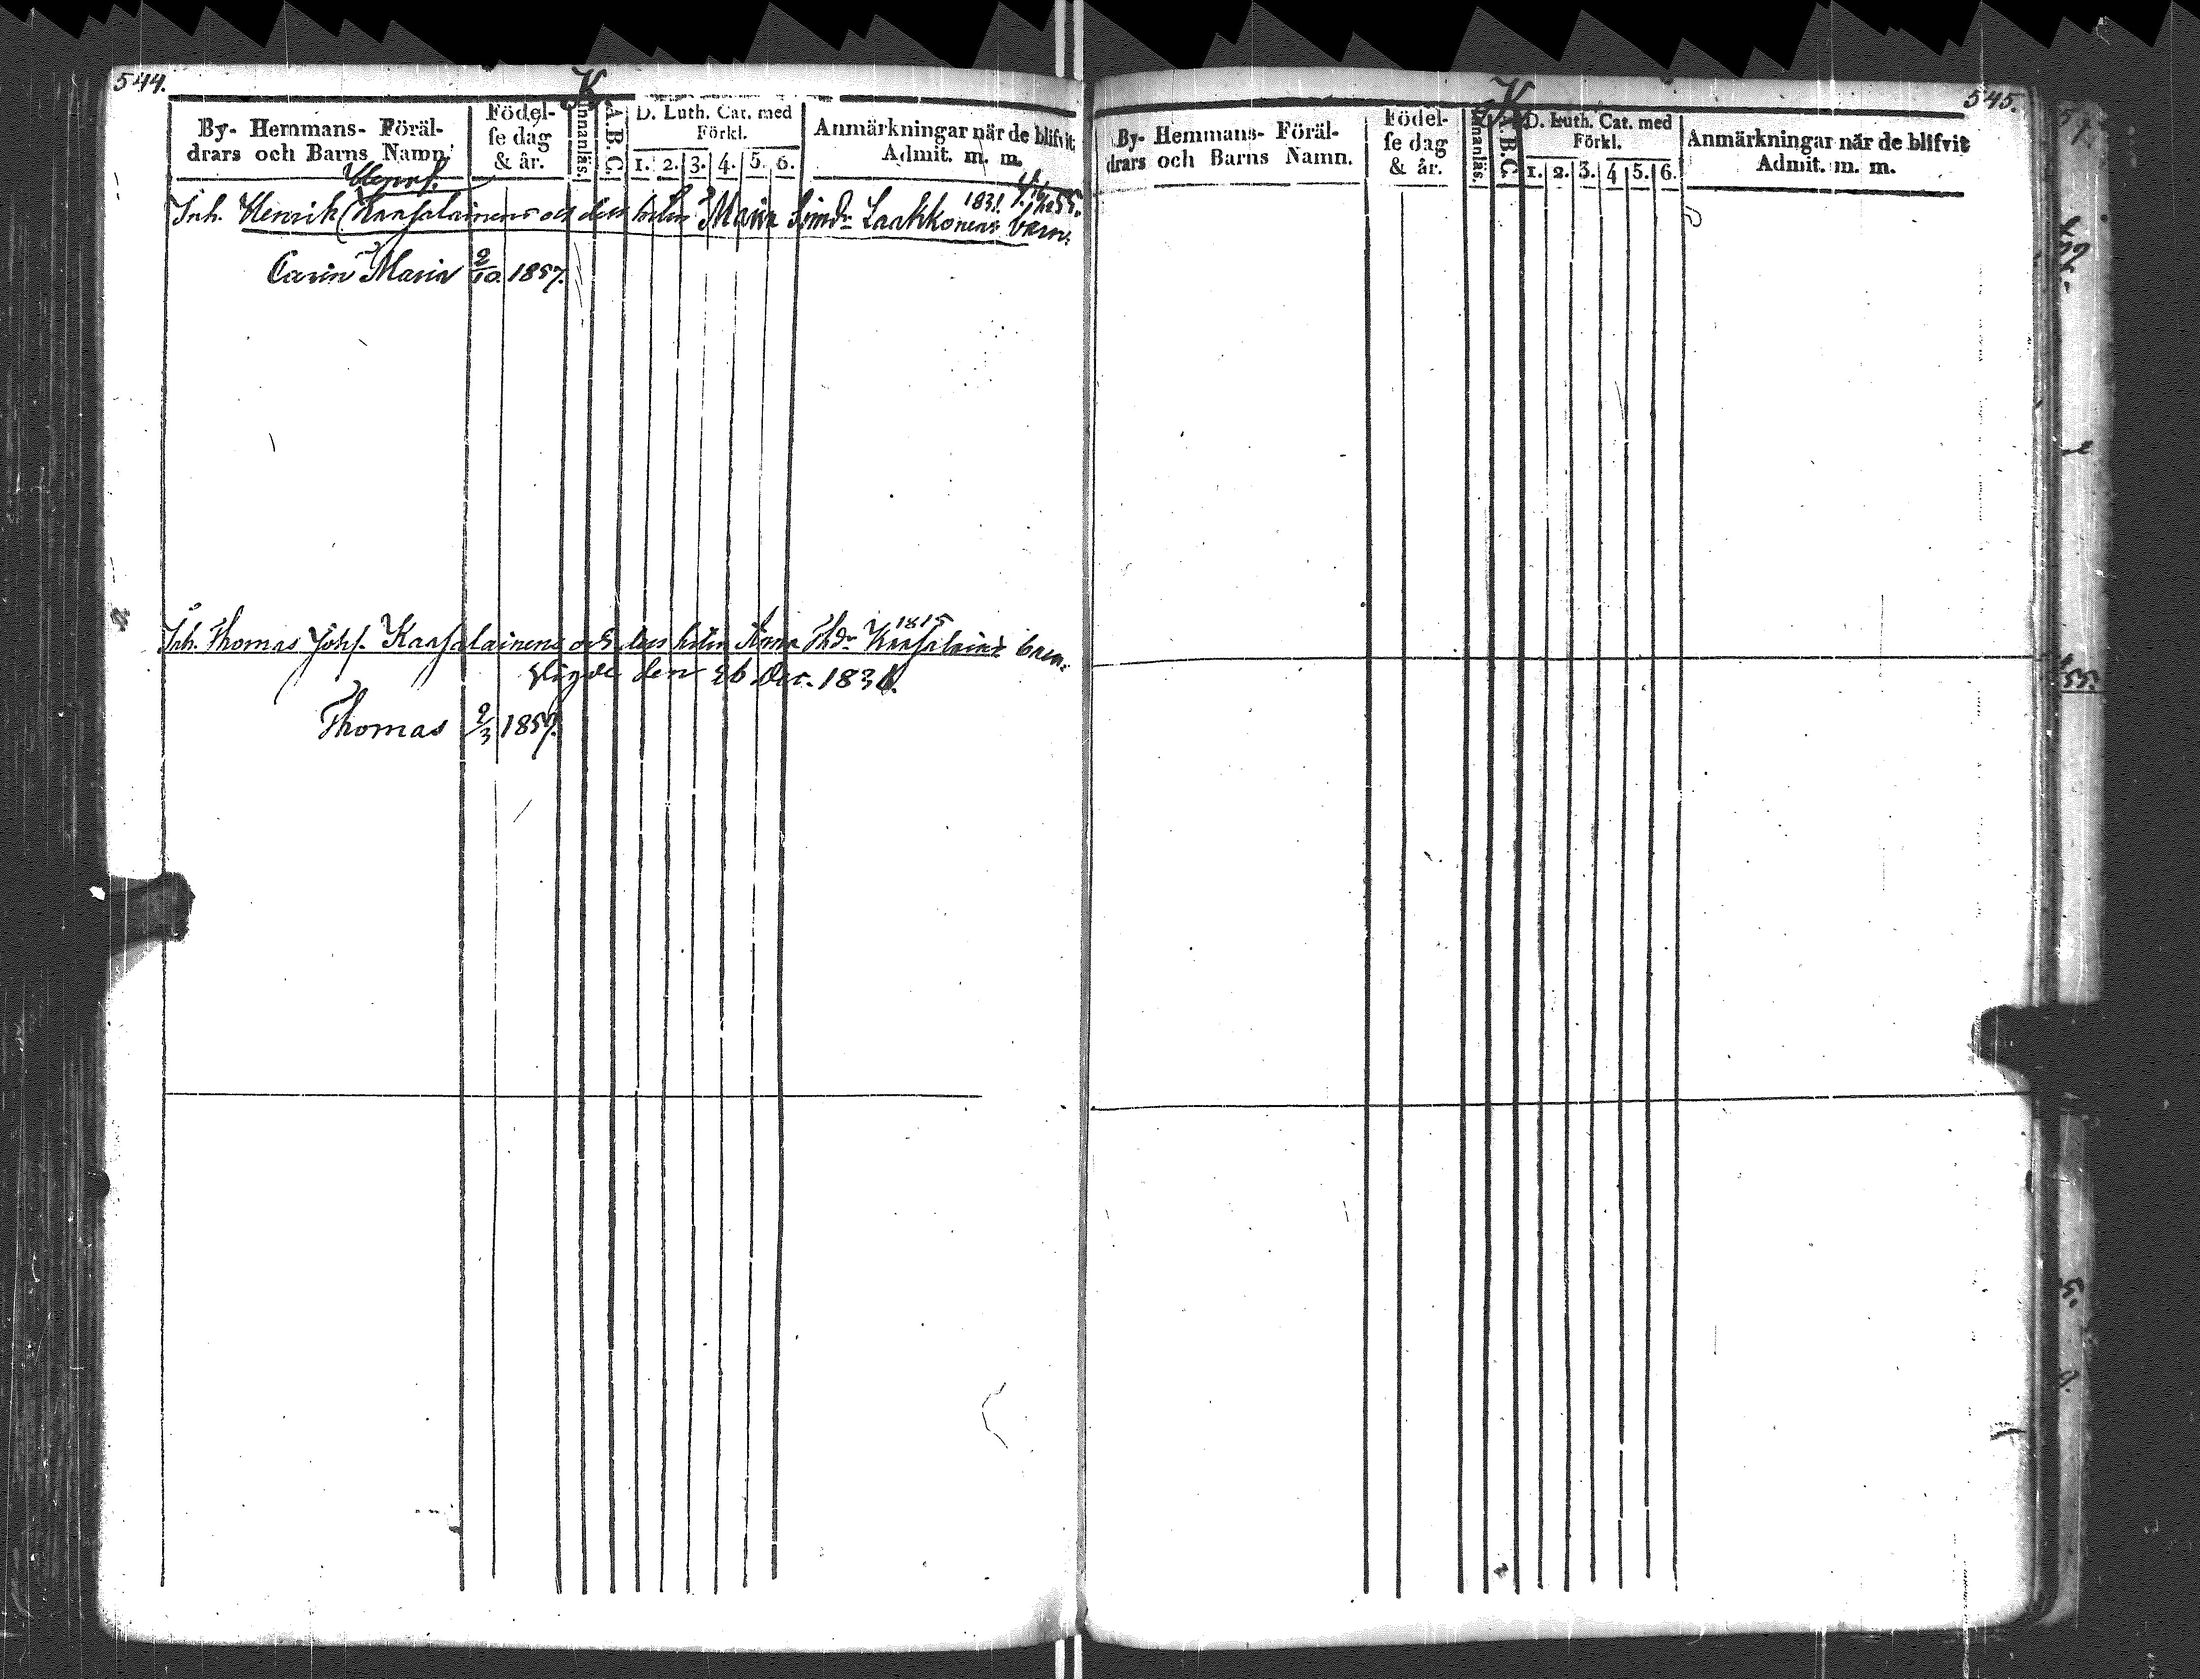 544.
K
By- Hemmans- Föräl-
drars och Barns Namn.
Födel-
se dag
& år.
Innanläs.
A.B.C.
D. Luth. Cat. med
Förkl.
1. 2. 3. 4. 5. 6.
Anmärkningar när de blifvit
Admit. m. m.
Inh. Henrik Kaasalainens och dess hustru Maria Simdr Laakkonens barn:
1831.
Carin Maria 2/10. 1857.
1815
Inh. Thomas Johs. Kaasalainens och des hustru Anna Thdr Kaasalain: barn:
Vigde den 26 Dec. 1831.
Thomas 2/3 1857.
545.
K
By- Hemmans- Föräl-
drars och Barns Namn.
Födel-
se dag
& år.
Innanläs.
A.B.C.
D. Luth. Cat. med
Förkl.
1. 2. 3. 4 5. 6.
Anmärkningar når de blifvit
Admit. m. m.
55.